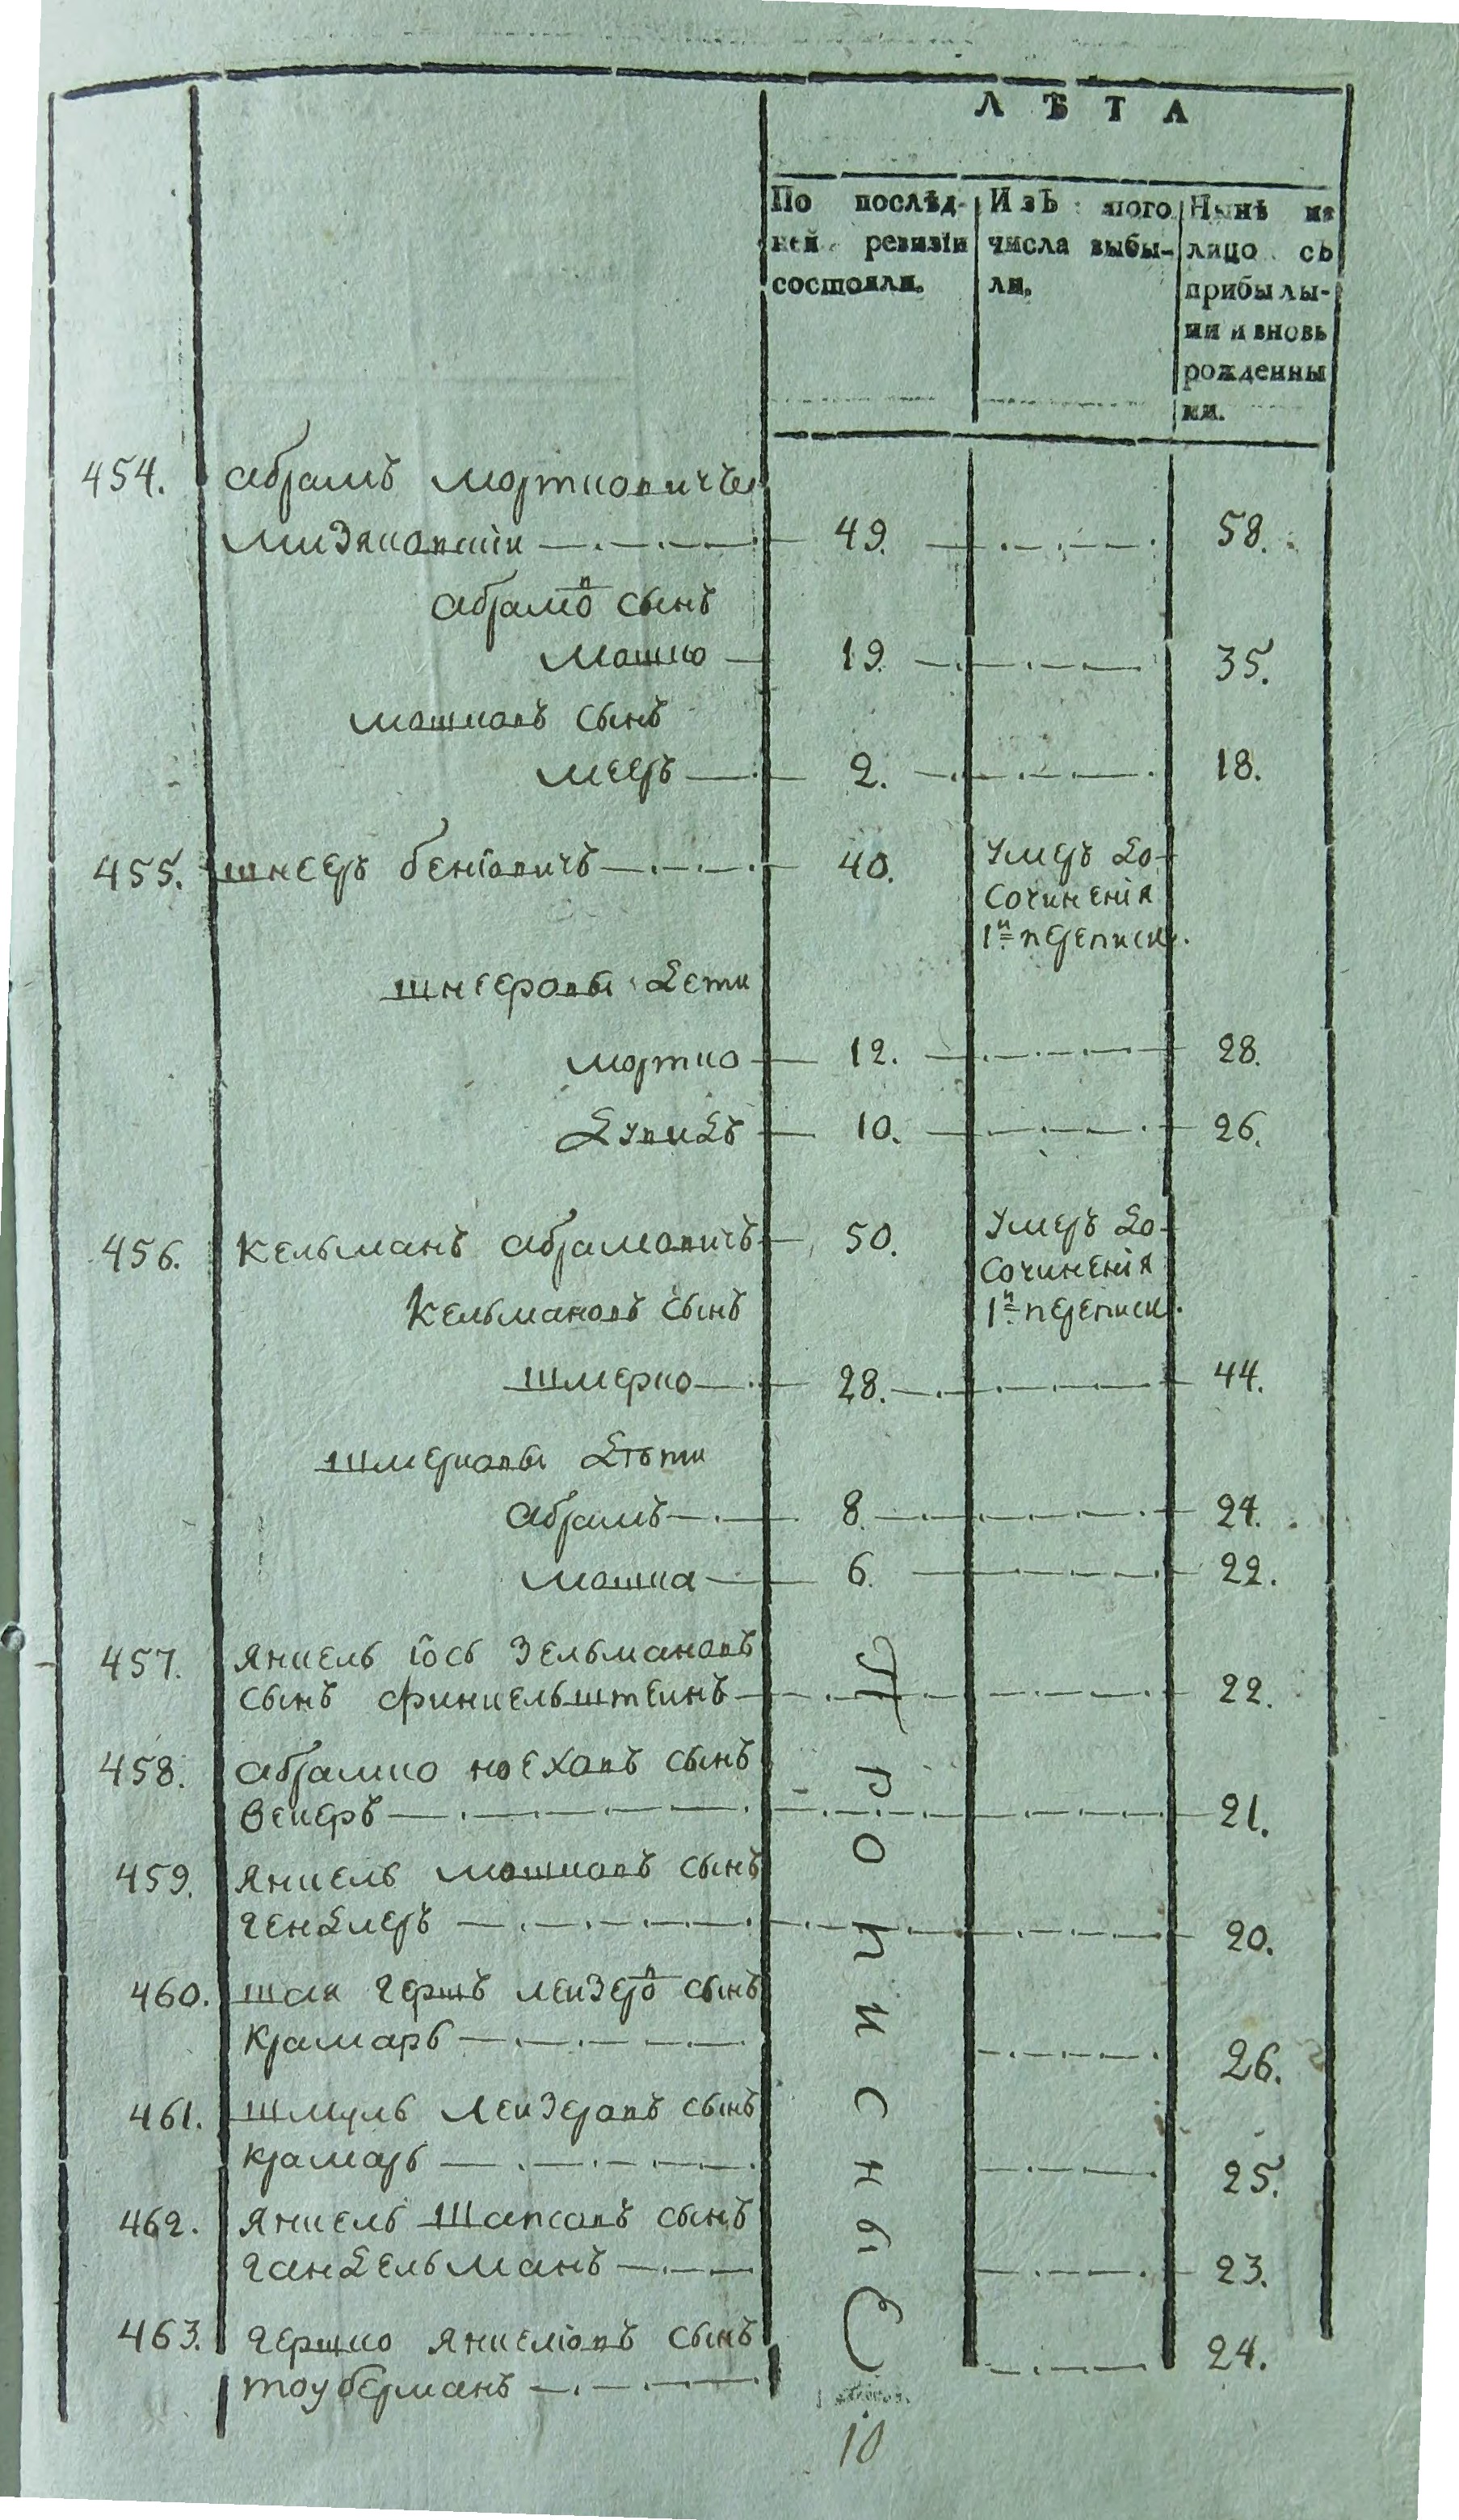 ЛѢТА
По послѣд-
ней ревизіи
состояли.
Изъ того
числа выбы-
ли.
Нынѣ на
лицо съ
прибылы-
ми и вновь
рожденны
ми.
454. Абрамъ Мортковичъ
49. 58.
Абрамовъ сынъ
Мошко 19. 35.
Мошковъ сынъ
Мееръ 2. 18.
455. Шнееръ Беніовичъ 40. Умеръ до
Сочиненія
1й переписи.
Шнееровы дети
Мортко 12. 28.
Дувидъ 10. 26.
456. Кельманъ Абрамовичъ 50. Умеръ до
Сочиненія
1й переписи.
Кельмановъ сынъ
Шмерко 28. 44.
Шмерковы дѣти
Абрамъ 8. 24.
Мошка 6. 22.
457. Янкель Іось Зельмановъ
сынъ Финкельштеинъ 22.
458. Абрамко Ноеховъ сынъ
Векеръ 21.
459. Янкель Мошковъ сынъ
Гендлеръ 20.
460. Шая Гершъ Лейзеровъ сынъ
Крамарь 26.
461. Шмуль Лейзеровъ сынъ
Крамарь 25.
462. Янкель Шапсовъ сынъ
Гандельманъ 23.
463. Гершко Янкеліовъ сынъ
Тоуберманъ 24.
10